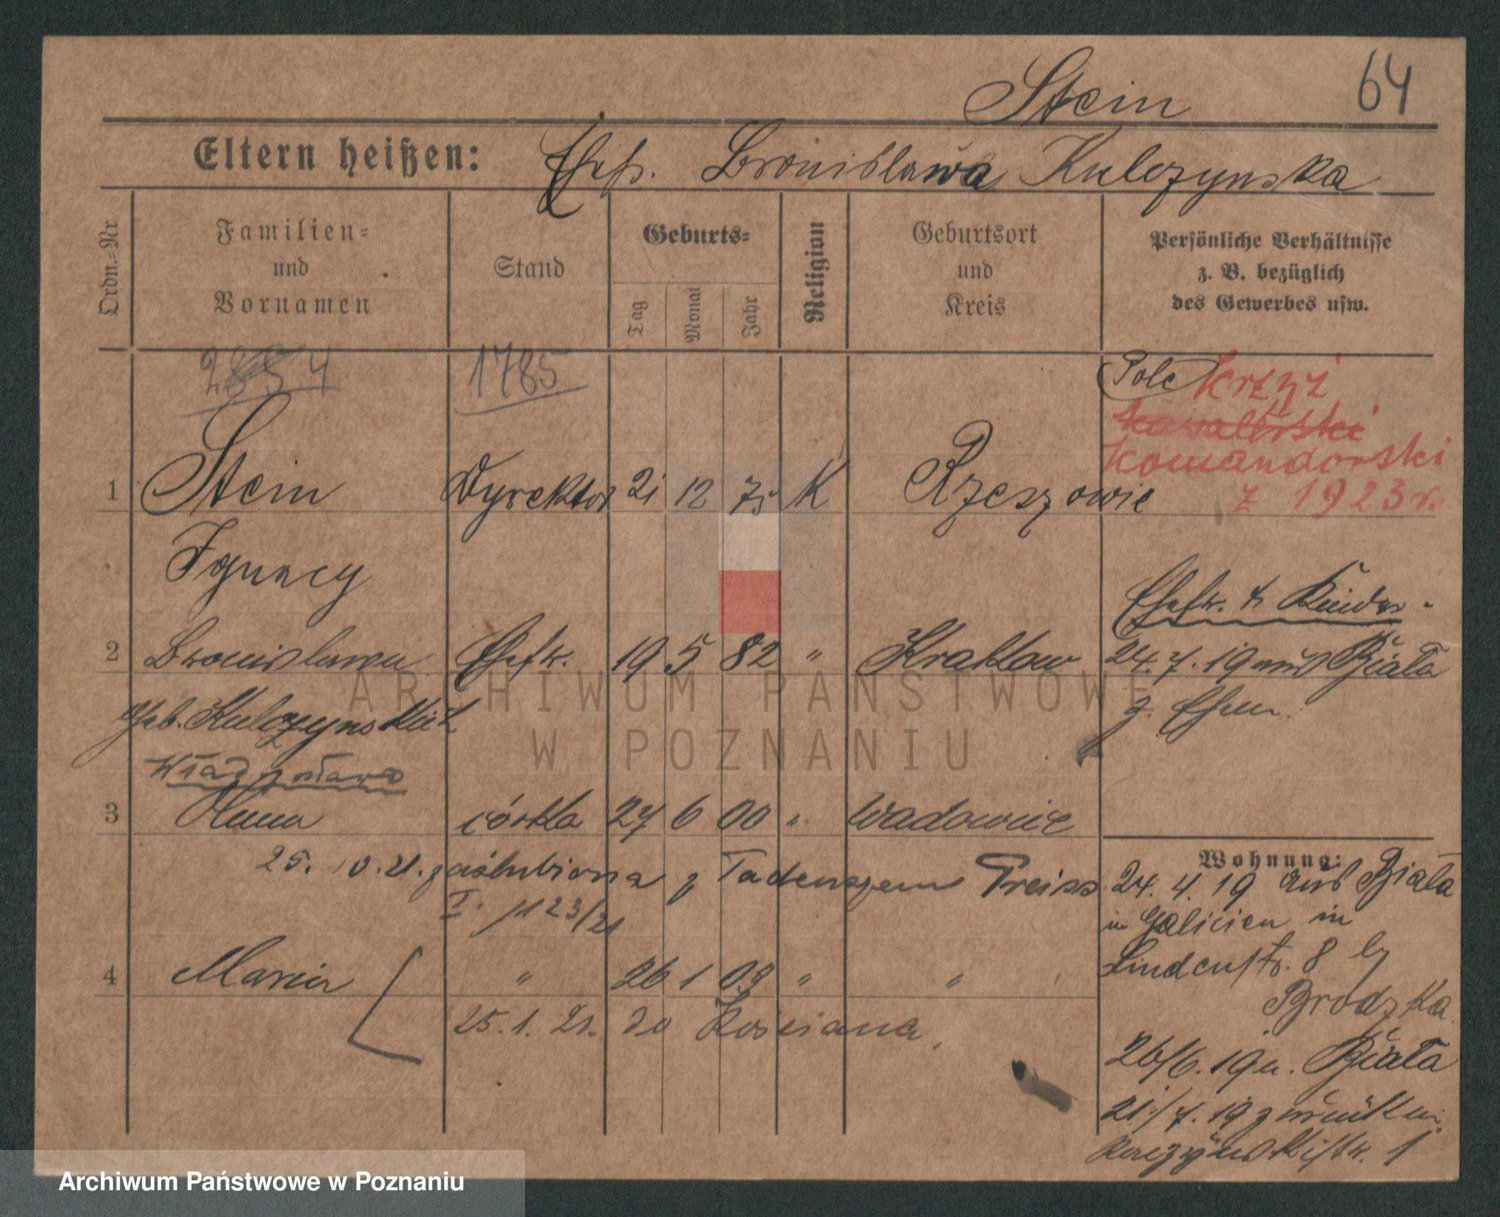 Stein 64
Eltern heißen: Ehefr. Bronisława Kulczynska
Ordn.-Nr
Familien-
und
Vornamen
Stand
Geburts-
Tag
Monat
Jahr
Religion
Geburtsort
und
Kreis
Persönliche Verhältnisse
z. B. bezüglich
des Gewerbes usw.
1785
Pole Krzyż
kawalerski
Komandorski
z 1923 r.
1 Stein Dyrektor 21 12 75 K Rzeszowie
Ignacy
Ehefr. u Kinder
2 Bronislawa Ehefr. 19 5 82 " Krakow
24.7.19 aus Biała
z. Ehem.
geb. Kulczynska
3 córka 27 6 00 " Wadowice
25. 10. 21. zaślubiona z Tadeuszem Preiss
I. 1123/21
Wohnung:
24. 4. 19 aus Biała
in Galicien in
Lindenstr. 8 by
Brodzka
4 Maria " 26 1 03 " "
25. 1. 21. do Kościana
26/6. 19 n. Biała
21/7. 19 zurück
1
ARCHIWUM PAŃSTWOWE
W POZNANIU
Archiwum Państwowe w Poznaniu